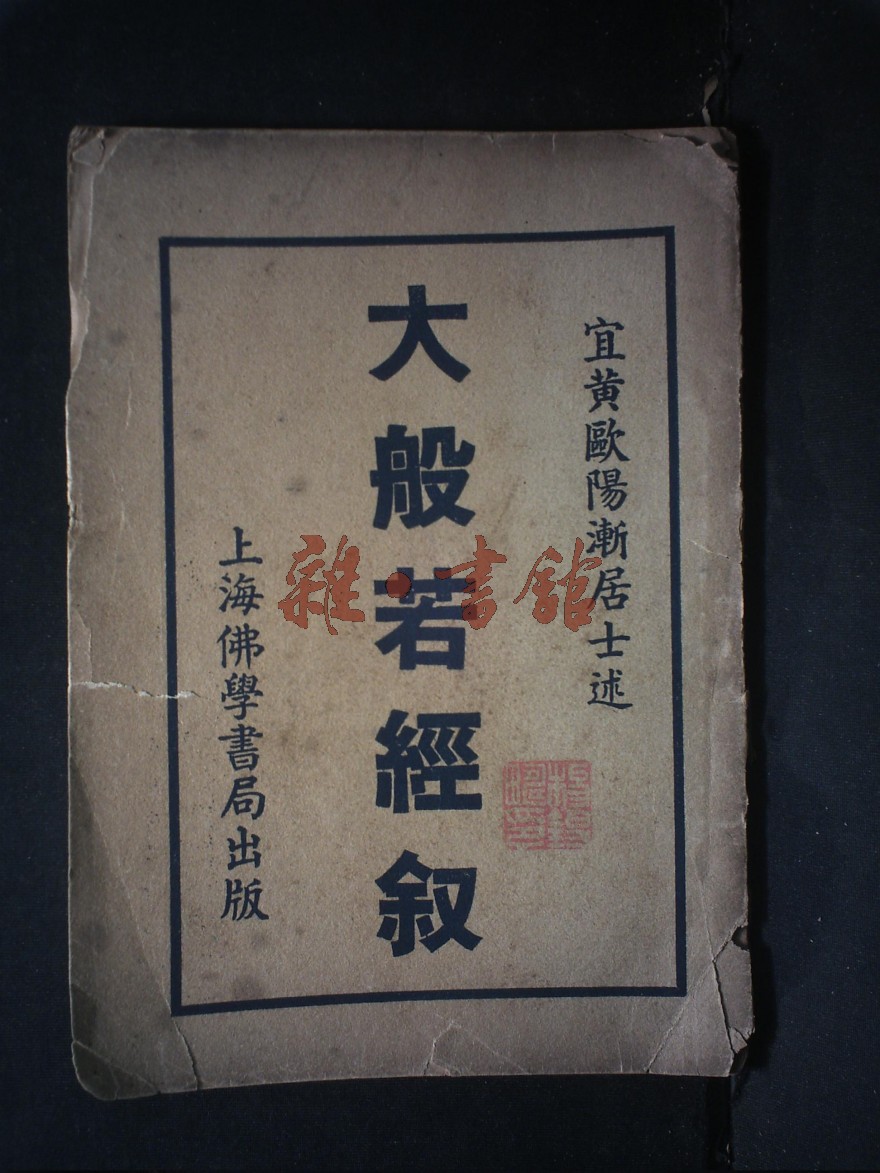 宜黄歐陽漸居士述
大般若經叙
上海佛學書局出版
雜·書館